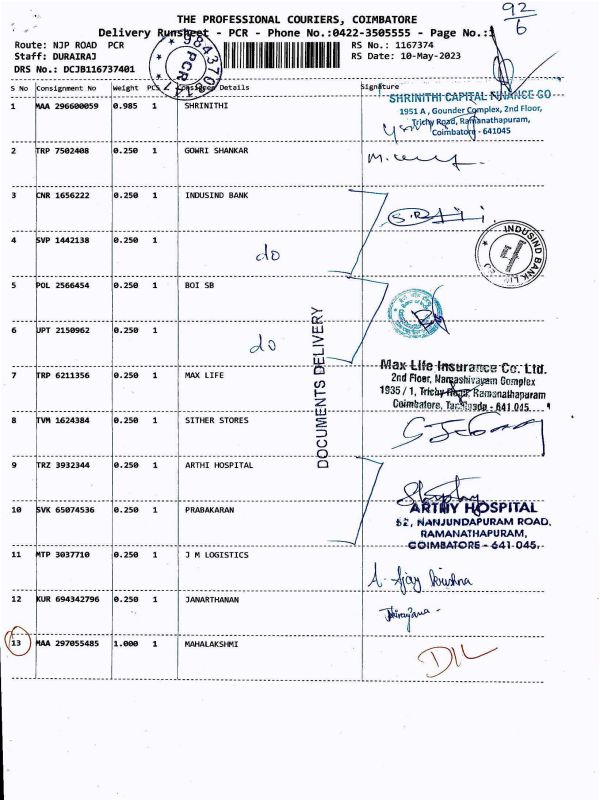 92
6
THE PROFESSIONAL COURIERS, COIMBATORE
Delivery Runsheet - PCR - Phone No.:0422-3505555 - Page No.:1
Route: NJP ROAD PCR
RS No.: 1167374
Staff: DURAIRAJ
RS Date: 10-May-2023
DRS No.: DCJB116737401
PCR
S No Consignment No Weight PCS Consignee Details Signature
1 MAA 296600059 0.985 1 SHRINITHI
SHRINITHI CAPITAL FINANCE CO
1951 A, Gounder Complex, 2nd Floor,
Trichy Road, Ramanathapuram,
Coimbatore - 641045
2 TRP 7502408 0.250 1 GOWRI SHANKAR
3 CNR 1656222 0.250 1 INDUSIND BANK
INDUSIND BANK
4 SVP 1442138 0.250 1
do
5 POL 2566454 0.250 1 BOI SB
6 UPT 2150962 0.250 1
do
DOCUMENTS DELIVERY
7 TRP 6211356 0.250 1 MAX LIFE
Max Life Insurance Co. Ltd.
2nd Floor, Namashivayam Complex
1935 / 1, Trichy Road, Ramanathapuram
Coimbatore, Tamilnadu - 641 045.
8 TVM 1624384 0.250 1 SITHER STORES
9 TRZ 3932344 0.250 1 ARTHI HOSPITAL
10 SVK 65074536 0.250 1 PRABAKARAN
ARTHY HOSPITAL
52, NANJUNDAPURAM ROAD,
RAMANATHAPURAM,
COIMBATORE - 641 045.
11 MTP 3037710 0.250 1 J M LOGISTICS
A. Ajay Krishna
12 KUR 694342796 0.250 1 JANARTHANAN
13 MAA 297055485 1.000 1 MAHALAKSHMI
DIL